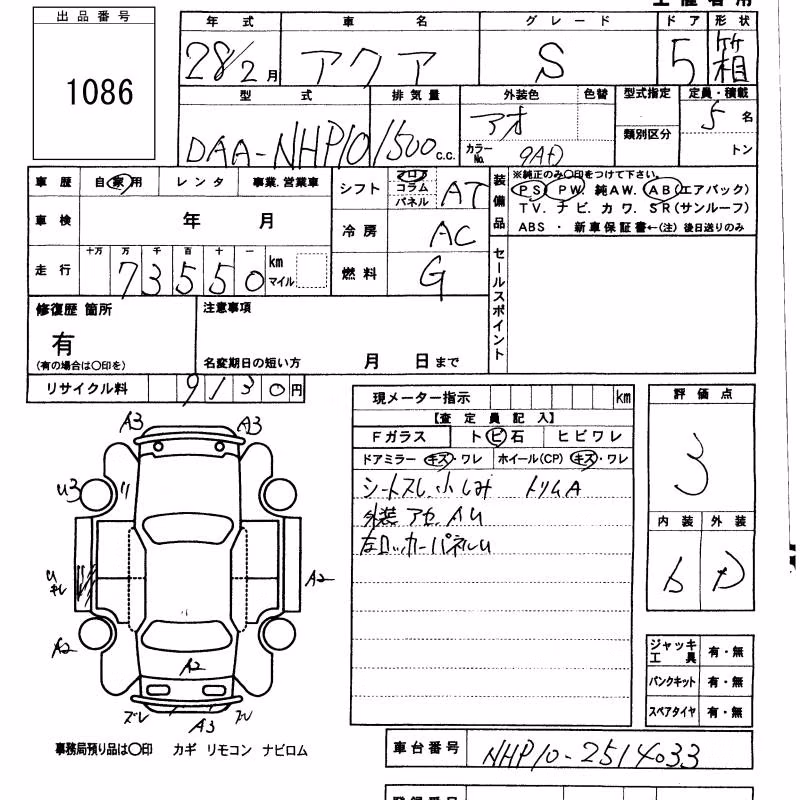 出品番号
1086
年式 車名 グレード ドア 形状
28/2月 アクア S 5 箱
型式 排気量 外装色 色替 型式指定 定員・積載
DAA-NHP10 1500 c.c. アオ 類別区分 5名
カラーNo. 9AH トン
車歴 自家用 レンタ 事業.営業車
シフト フロア コラム パネル AT
装備品
※純正のみ○印をつけて下さい。
PS PW 純AW. AB(エアバック)
TV. ナビ. カワ. SR(サンルーフ)
ABS ・ 新車保証書←(注) 後日送りのみ
車検 年 月
冷房 AC
走行 十万 万 千 百 十 一
73550 km マイル
燃料 G
セールスポイント
修復歴 箇所
有
(有の場合は○印を)
注意事項
名変期日の短い方 月 日まで
リサイクル料 9130円
現メーター指示 km
【査定員記入】
Fガラス トビ石 ヒビワレ
ドアミラー キズ・ワレ ホイール(CP) キズ・ワレ
シートスレ 小しみ トリムA
外装 アセ AU
左ロッカーパネルU
評価点
3
内装 外装
b D
A3 A3
U3
U
キレ
A2
A2
A2
ズレ A3 ズレ
ジャッキ
工具 有・無
パンクキット 有・無
スペアタイヤ 有・無
事務局預り品は○印 カギ リモコン ナビロム
車台番号 NHP10-2514033